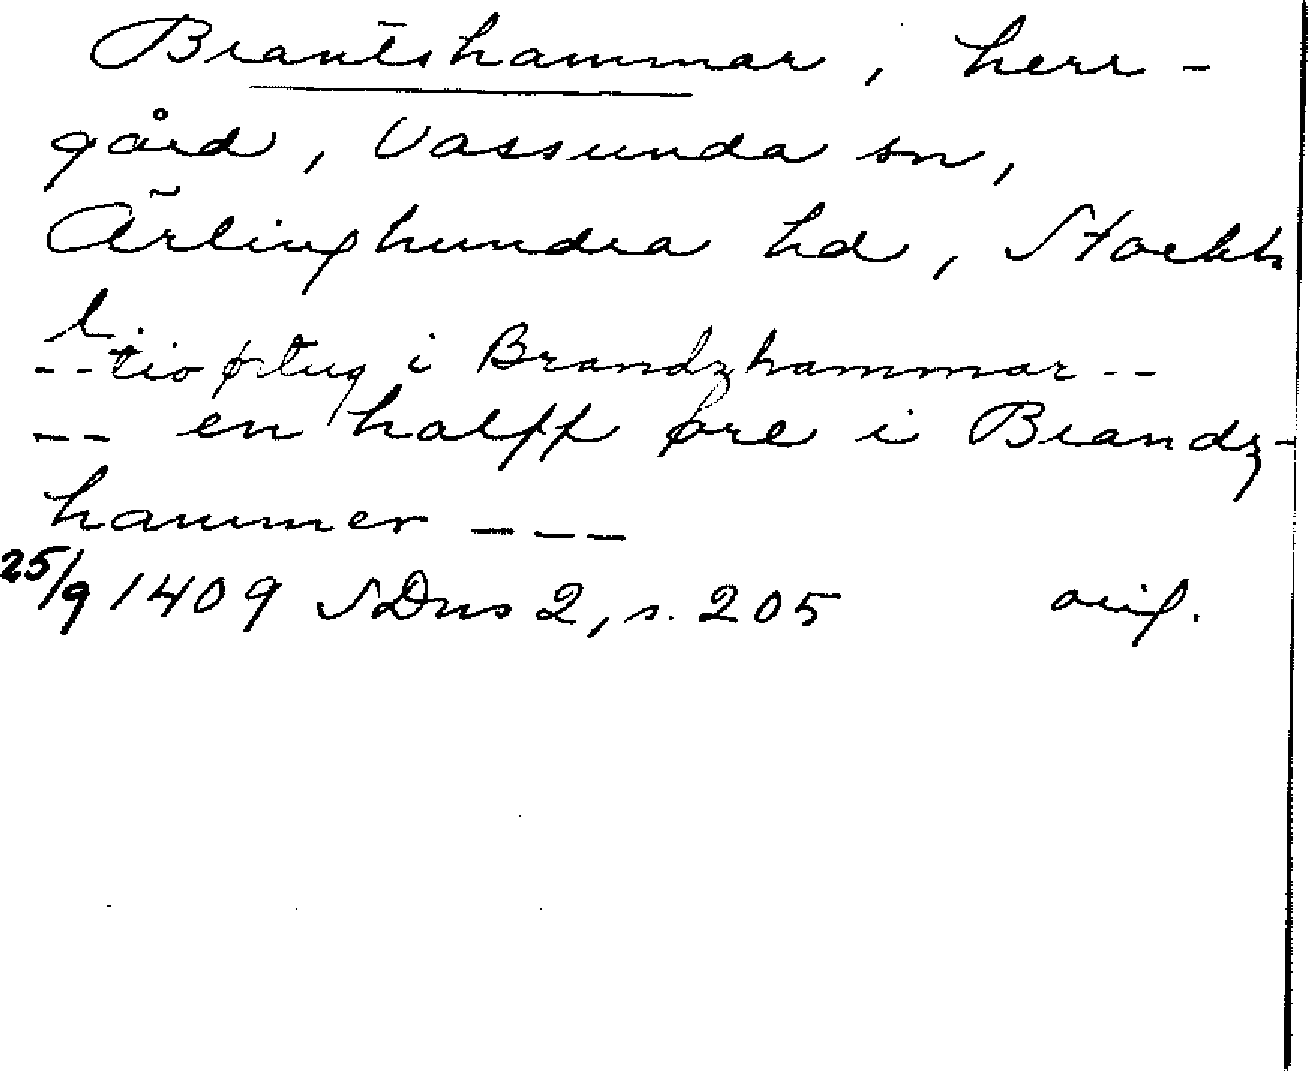 Brantshammar, herr-
gård, Vassunda sn,
Ärlinghundra hd, Stockh
l.
-- tio ørtug i Brandzhammar --
-- en halff øre i Brandz-
hammer ---
25/9 1409 SDns 2, s. 205 orig.